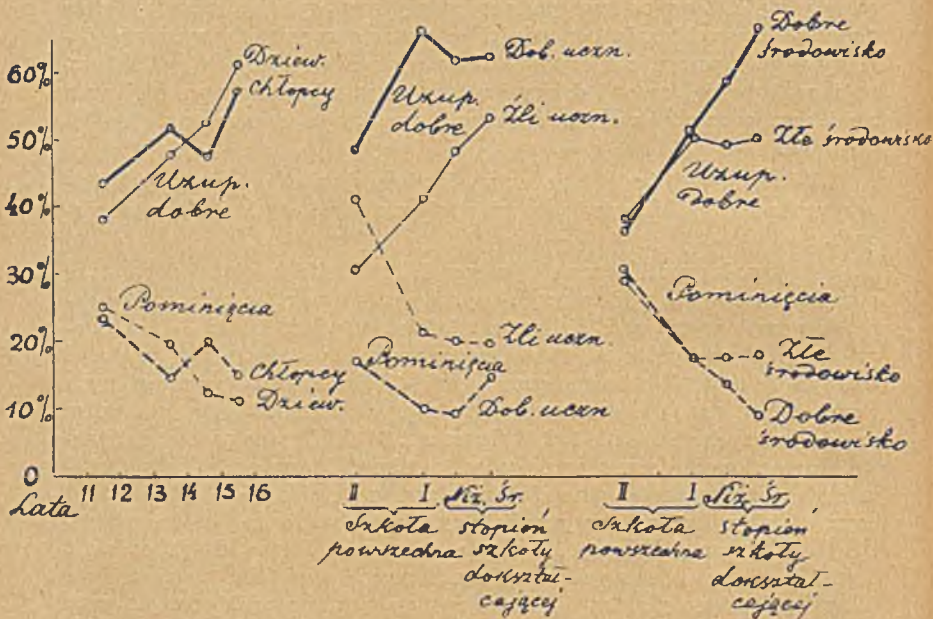 60%
50%
40%
30%
20%
10%
0
Dziew.
Chłopcy
Uzup.
dobre
Pominięcia
Chłopcy
Dziew.
Lata
11 12 13 14 15 16
Dob. uczn.
Uzup.
dobre
Źli uczn.
Źli uczn.
Pominięcia
Dob. uczn
II I Niż. Śr.
Szkoła
powszechna
stopień
szkoły
dokształ-
cającej
Dobre
środowisko
Złe środowisko
Uzup.
Dobre
Pominięcia
Złe
środowisko
Dobre
środowisko
II I Niż. Śr.
Szkoła
powszechna
stopień
szkoły
dokształ-
cającej